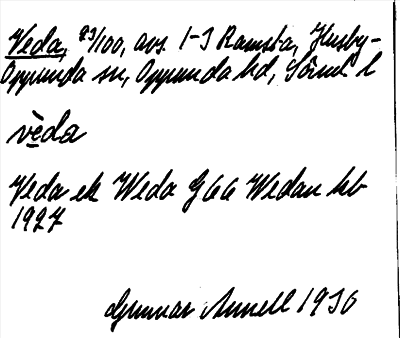 Veda, 23/100, avs. 1-3 Ramsta, Husby-
Oppunda sn, Oppunda hd, Söml. l
vèda
Veda ek Weda G 66 Wedan kb
1927
Gunnar Annell 1936